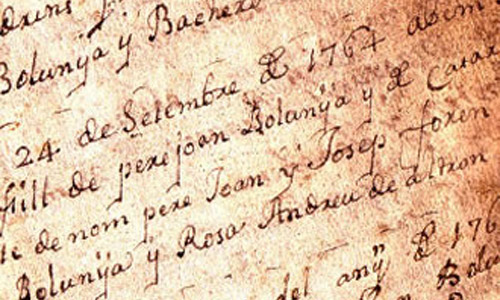 Bolunÿa y Bachero
24 de Setembre de 1764
fill de pere joan Bolunÿa y de
de nom pere Joan y Josep foren
Bolunÿa y Rosa Andreu de
del anÿ de 176